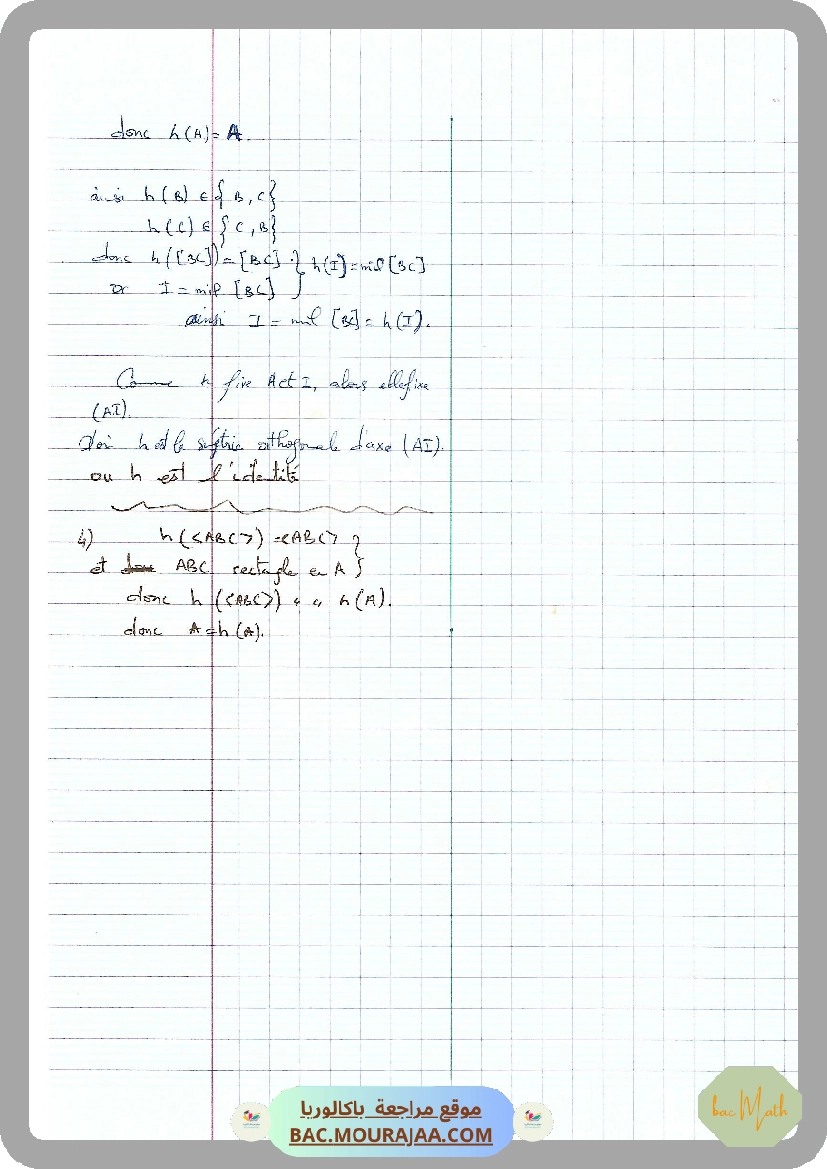 donc h(A) = A.
ainsi h(B) ∈ { B, C }
h(C) ∈ { C, B }
donc h([BC]) = [BC] } h(I) = mil [BC]
or I = mil [BC]
ainsi I = mil [BC] = h(I).
Comme h fixe A et I, alors elle fixe
(AI).
d'où h est la symétrie orthogonale d'axe (AI).
ou h est l'identité
4) h(<ABC>) = <ABC> }
et ABC rectangle en A }
donc h(<ABC>) " " h(A).
donc A = h(A).
موقع مراجعة باكالوريا
BAC.MOURAJAA.COM
bac Math